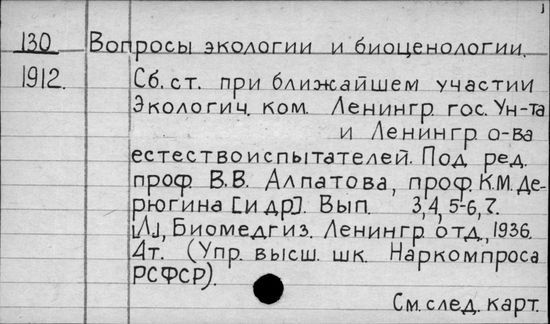 130 Вопросы экологии и биоценологии.
1912. Сб. ст. при ближайшем участии
Экологич. ком. Ленингр. гос. Ун-та
и Ленингр. о-ва
естествоиспытателей. Под ред.
проф. В.В. Алпатова, проф. К.М. Де-
рюгина [и др]. Вып. 3,4,5-6,7.
[Л], Биомедгиз. Ленингр. отд, 1936.
4т. (Упр. высш. шк. Наркомпроса
РСФСР).
См. след. карт.